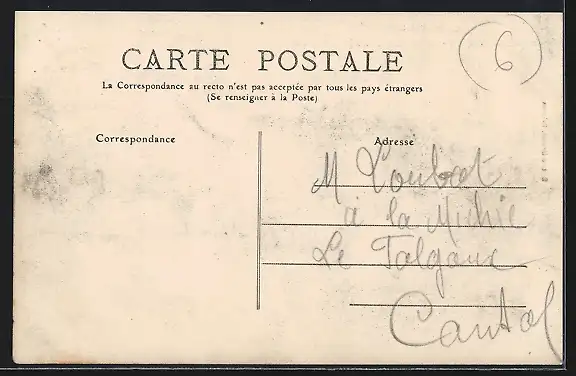 CARTE POSTALE
6
La Correspondance au recto n'est pas acceptée par tous les pays étrangers
(Se renseigner à la Poste)
Correspondance
Adresse
M Loubat
à la
Le Falgoux
Cantal